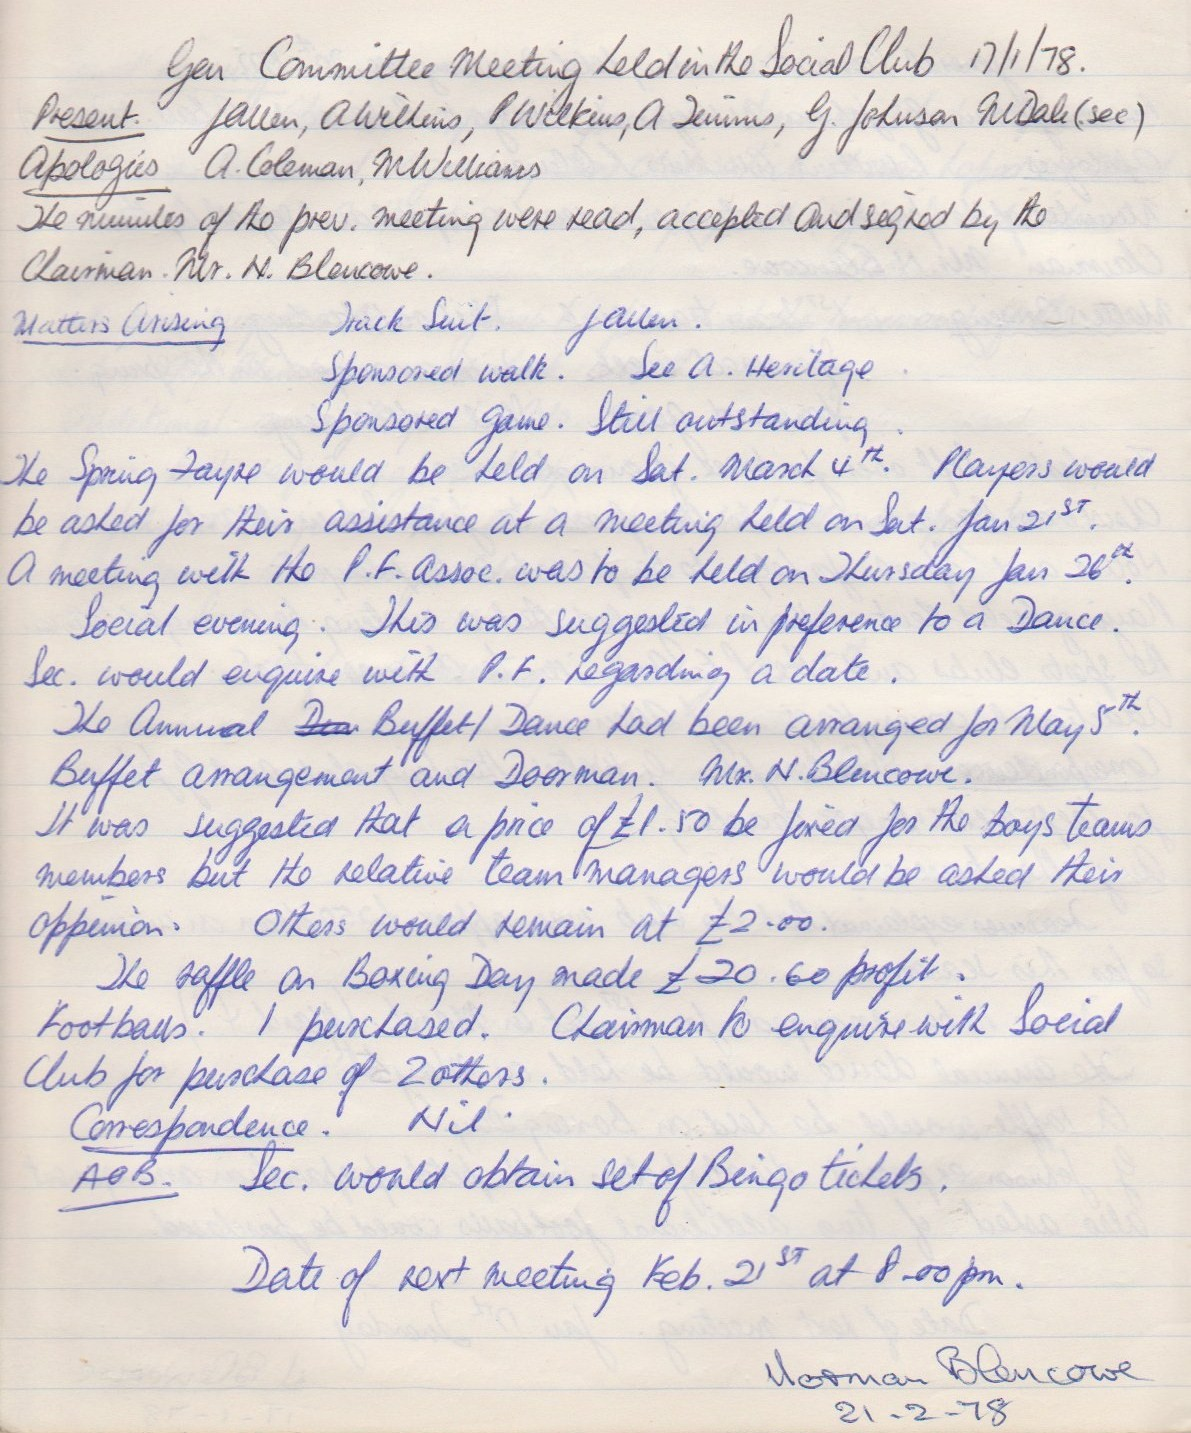 Gen Committee Meeting held in the Social Club 17/1/78.
Present. J Allen, A Wilkins, P Wilkins, A Timms, G. Johnson M Dale (sec)
Apologies A. Coleman, M Williams
The minutes of the prev. meeting were read, accepted and signed by the
Chairman. Mr. N. Blencowe.
Matters Arising Track Suit. J Allen.
Sponsored walk. See A. Heritage
Sponsored game. Still outstanding.
The Spring Fayre would be held on Sat. March 4th. Players would
be asked for their assistance at a meeting held on Sat. Jan 21ST.
A meeting with the P.F. Assoc. was to be held on Thursday Jan 26th.
Social evening. This was suggested in preference to a Dance.
Sec. would enquire with P.F. regarding a date.
The Annual Buffet/Dance had been arranged for May 5th.
Buffet arrangement and Doorman. Mr. N. Blencowe.
It was suggested that a price of £1.50 be fixed for the boys teams
members but the relative team managers would be asked their
oppinion. Others would remain at £2.00.
The raffle on Boxing Day made £20.60 profit.
Footballs. 1 purchased. Chairman to enquire with Social
Club for purchase of 2 others.
Correspondence. Nil.
AOB. Sec. would obtain set of Bingo tickets.
Date of next meeting Feb. 21ST at 8.00pm.
Norman Blencowe
21-2-78